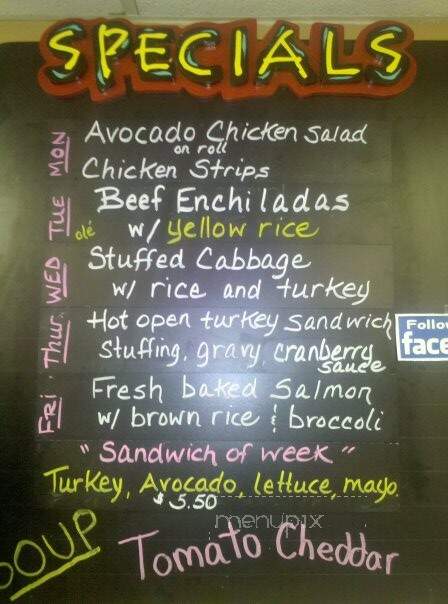 SPECIALS
MON
Avocado Chicken Salad
on roll
Chicken Strips
TUE
Beef Enchiladas
olé
w/ yellow rice
WED
Stuffed Cabbage
w/ rice and turkey
Thur.
Hot open turkey Sandwich
Stuffing, gravy, cranberry
sauce
FRI.
Fresh baked Salmon
w/ brown rice & broccoli
"Sandwich of week"
Turkey, Avocado, lettuce, mayo.
$5.50
menupix
SOUP
Tomato Cheddar
Follo
face